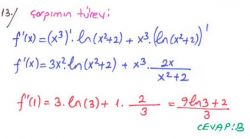 13. çarpımın türevi
f'(x) = (x³)'. ln(x²+2) + x³. (ln(x²+2))'
f'(x) = 3x² ln(x²+2) + x³. 2x/(x²+2)
f'(1) = 3. ln(3) + 1. 2/3 = (9ln3+2)/3
CEVAP:B